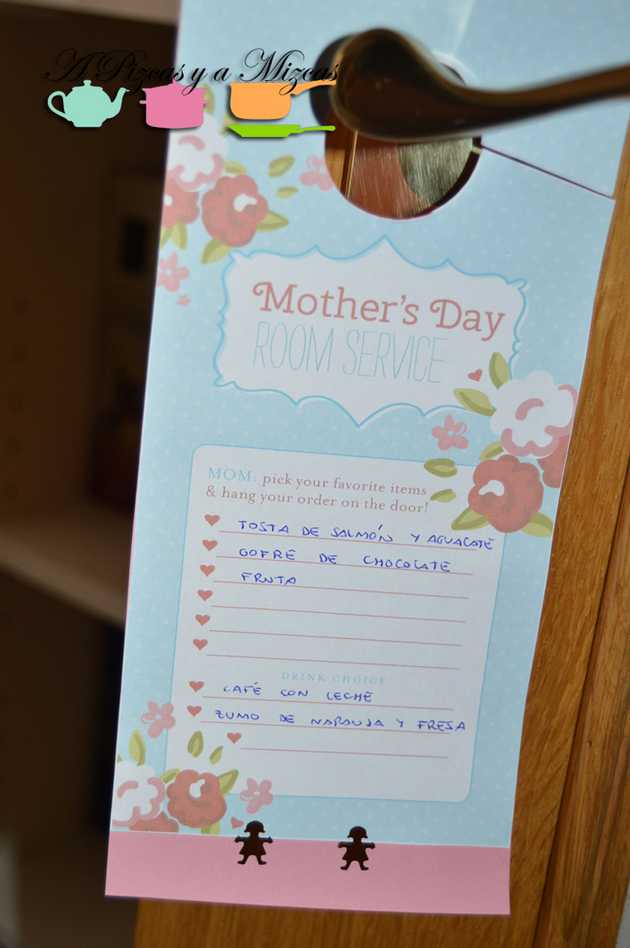 A Pizcas y a Mizcas
Mother's Day
ROOM SERVICE
MOM: pick your favorite items
& hang your order on the door!
TOSTA DE SALMÓN Y AGUACATE
GOFRE DE CHOCOLATE
FRUTA
DRINK CHOICE
CAFÉ CON LECHE
ZUMO DE NARANJA Y FRESA